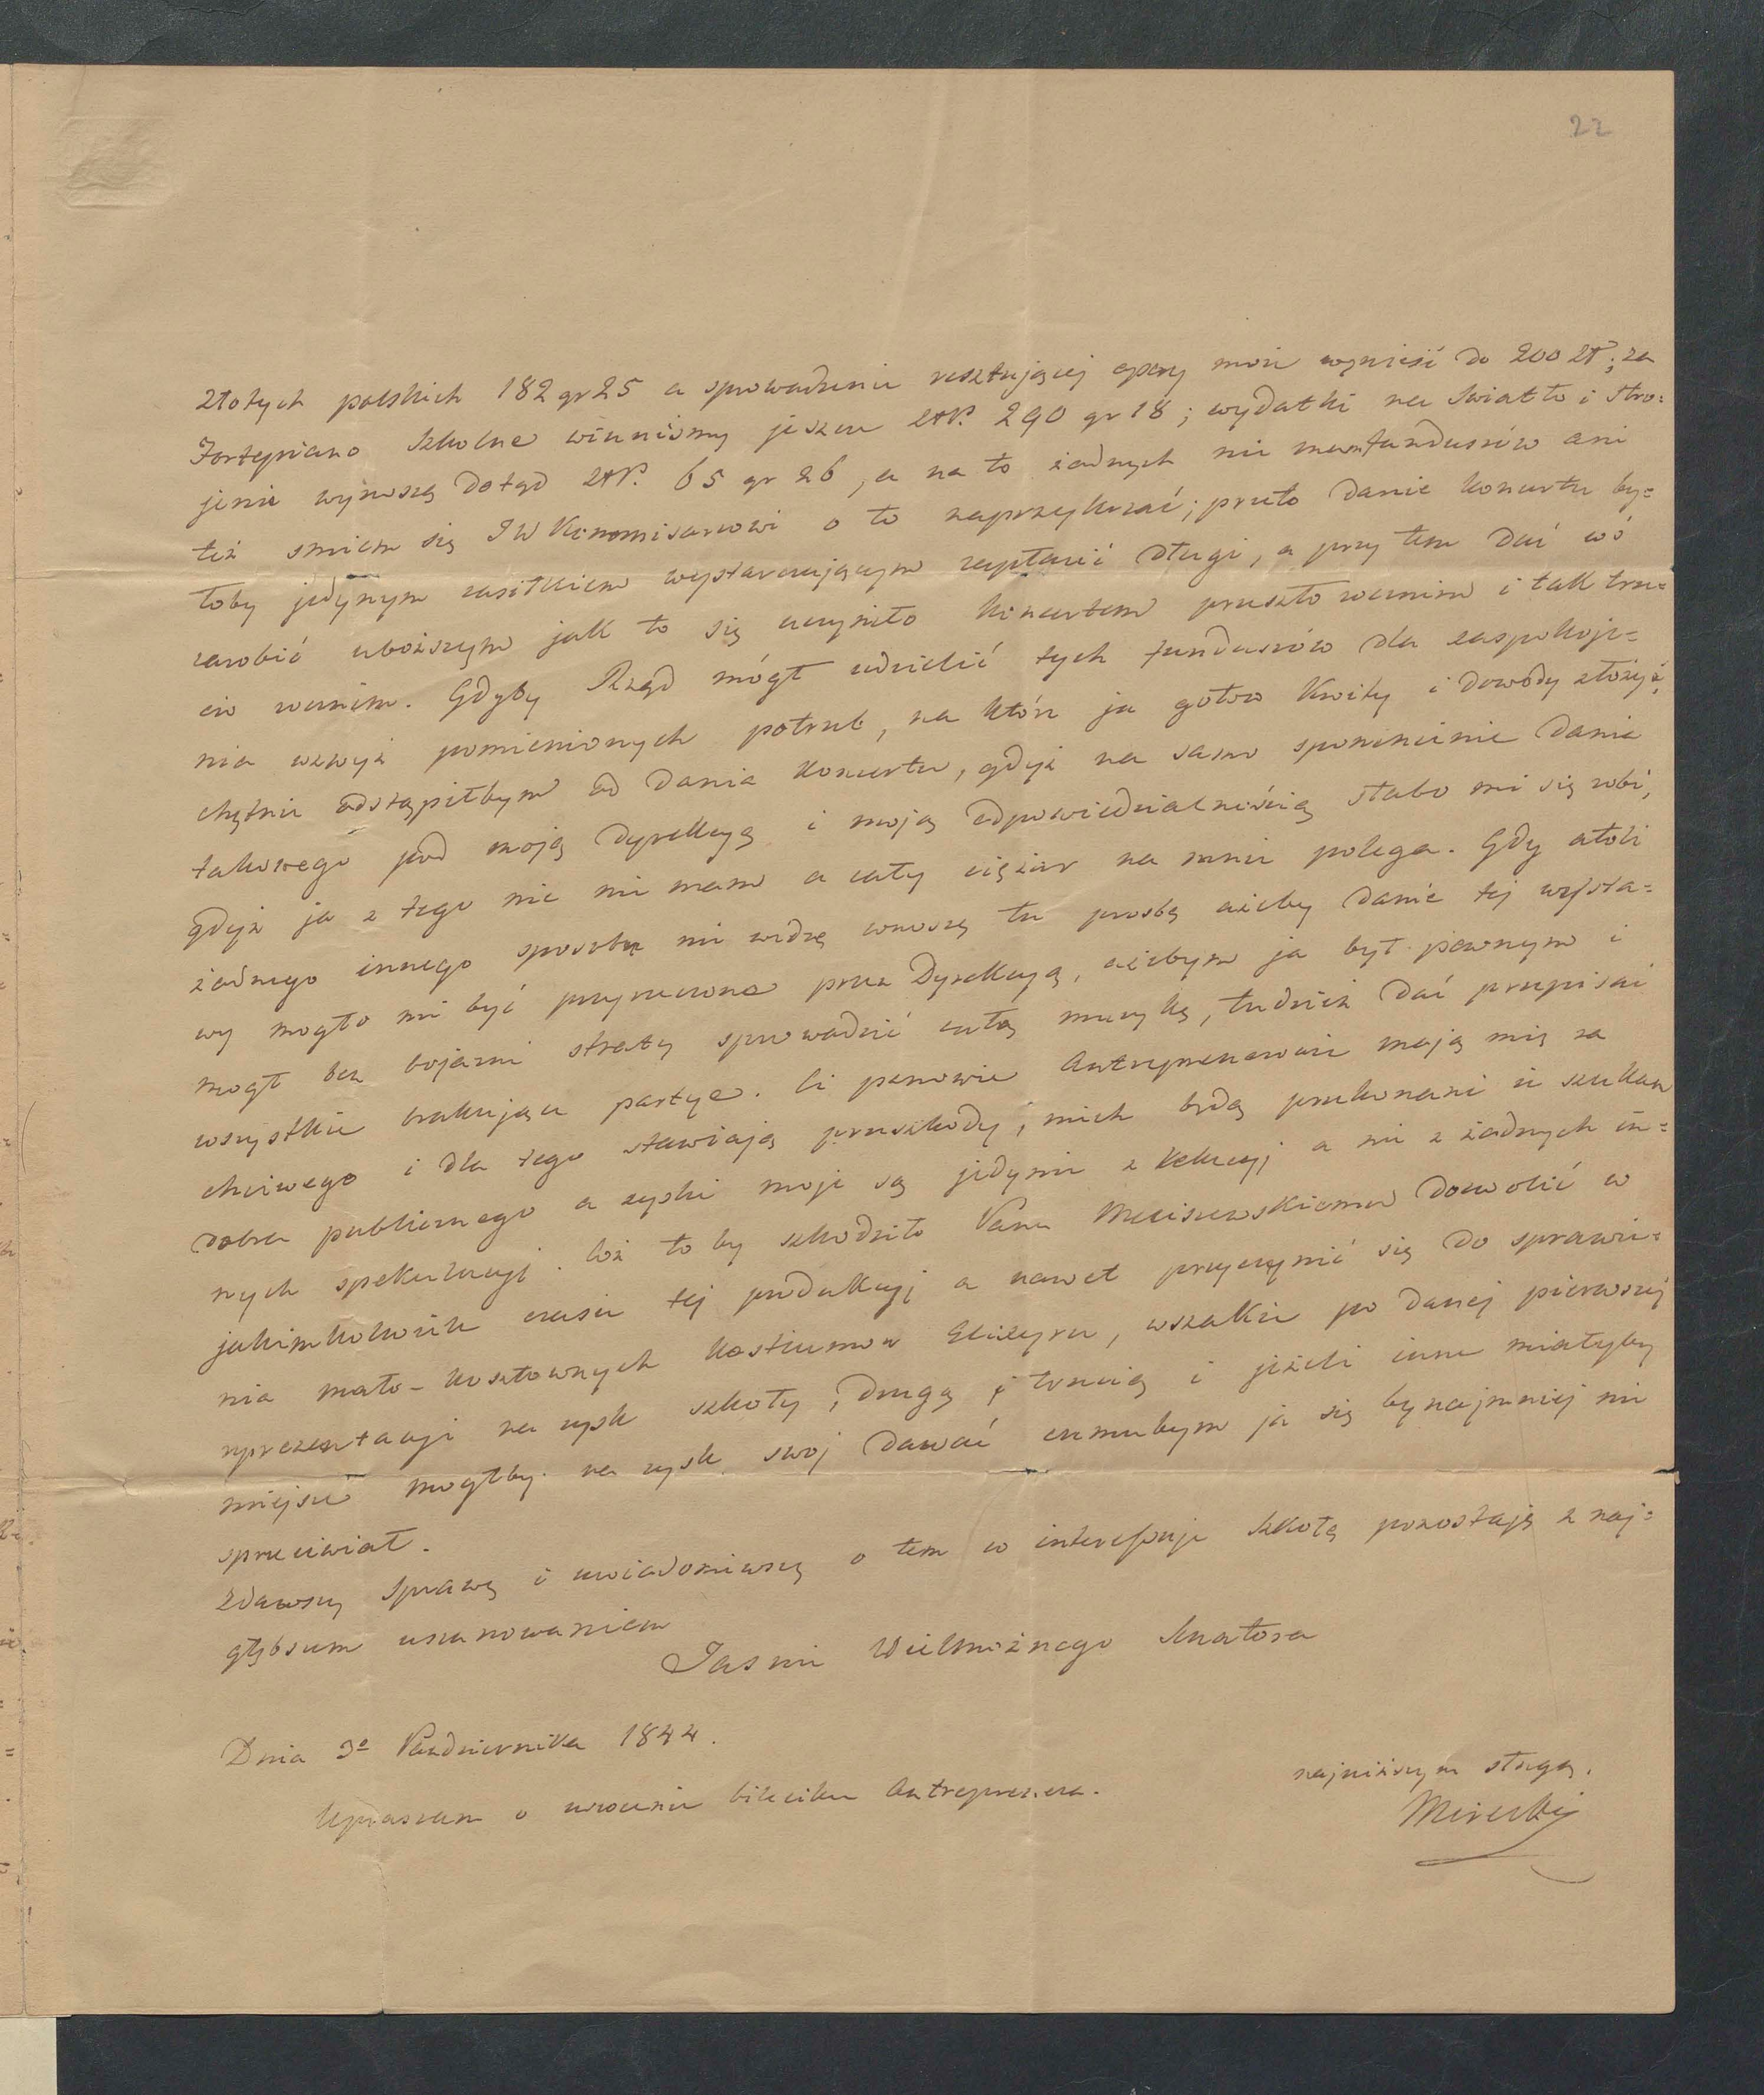 22
złotych polskich 182 gr 25 a sprowadzenie resztującej opery może wynieść do 200 zł; za
Fortepiano szkolne winniśmy jeszcze złP. 290 gr 18; wydatki na światło i stro=
jenie wynoszą dotąd złP. 65 gr 26, a na to żadnych nie mam funduszów ani
też smiem się JW Kommisarzowi o to naprzykrzać; przeto danie koncertu by=
łoby jedynym zasiłkiem wystarczającym zapłacić długi, a przy tem dać coś
zarobić uboższym jak to się uczyniło koncertem przeszło rocznim i tak trze=
cio rocznim. Gdyby Rząd mógł udzielić tych funduszów dla zaspokoje=
nia wzwyż pomienionych potrzeb, na które ja gotow kwity i dowody złożyć,
chętnie odstąpiłbym od dania koncertu, gdyż na samo spomnienie dania
takowego pod moją dyrekcyą i moją odpowiedzialnością słabo mi się robi,
gdyż ja z tego nic nie mam a cały ciężar na mnie polega. Gdy atoli
żadnego innego sposobu nie widzę wnoszę tu prosbę ażeby danie tej wysta=
wy mogło mi być przyrzeczone przez Dyrekcyą, ażebym ja był pewnym i
mogł bez bojazni straty sprowadzić całą muzykę, tudzież dać przepisać
wszystkie brakujące partye. Ci panowie Antreprenerowie mają mię za
chciwego i dla tego stawiają przeszkody; niech będą przekonani iż szukam
dobra publicznego a zyski moje są jedynie z lekcyj a nie z żadnych in=
nych spekulacyj. Cóż to by szkodziło Panu Meciszewskiemu dozwolić w
jakimkolwiek czasie tej produkcyj a nawet przyczynić się do sprawie=
nia mało-kosztownych kostiumow Elixyru, wszakże po danej pierwszej
reprezentacyi na zysk szkoły, drugą i trzecią i jeżeli inne miałyby
miejsce mogłby na zysk swoj dawać czemubym ja się bynajmniej nie
sprzeciwiał.
Zdawszy sprawę i uwiadomiwszy o tem co interessuje szkołę pozostaję z naj=
głębszem uszanowaniem
Jasnie Wielmożnego Senatora
Dnia 3º Października 1844.
najniższym sługą.
Mirecki
Upraszam o zwrocenie bileciku Antreprenera.